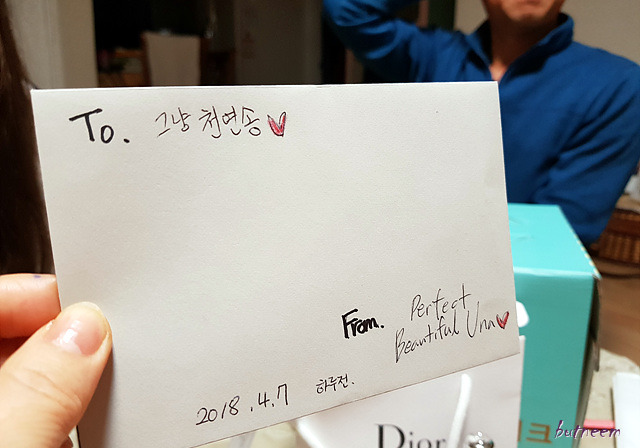 To. 그냥 천연송
From. Perfect
Beautiful Unn
2018.4.7 하루전.
Dior
크
butneem